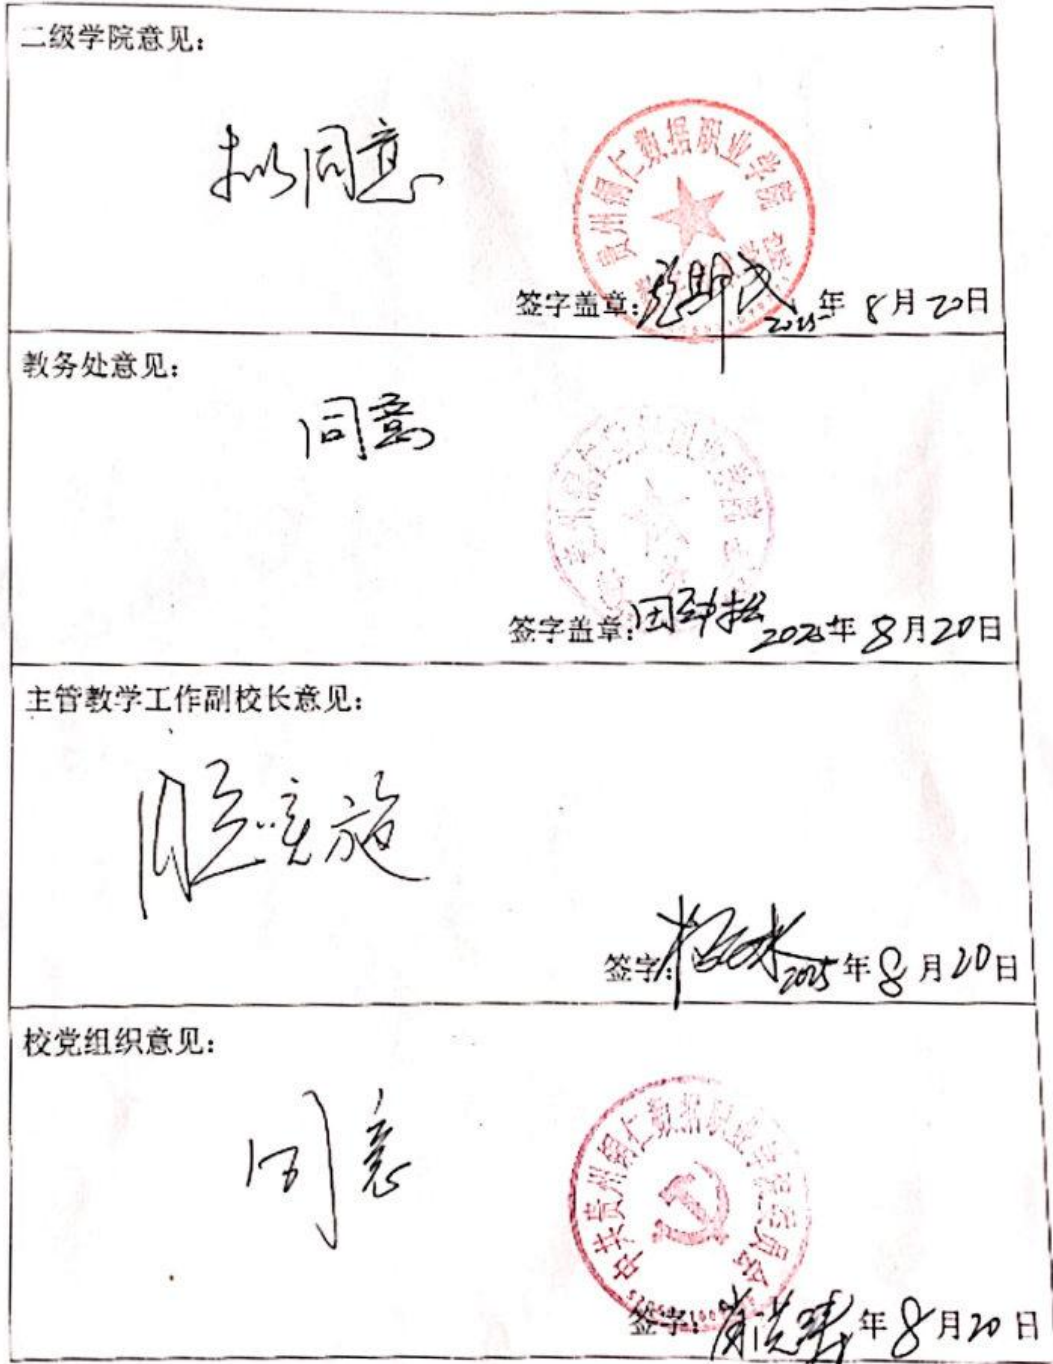 二级学院意见：
拟同意
贵州铜仁数据职业学院
签字盖章： 2025年 8月20日
教务处意见：
同意
签字盖章：田 2025年 8月20日
主管教学工作副校长意见：
同意实施
签字： 2025年 8月20日
校党组织意见：
同意
中共贵州铜仁数据职业学院委员会
签字： 年 8月20日